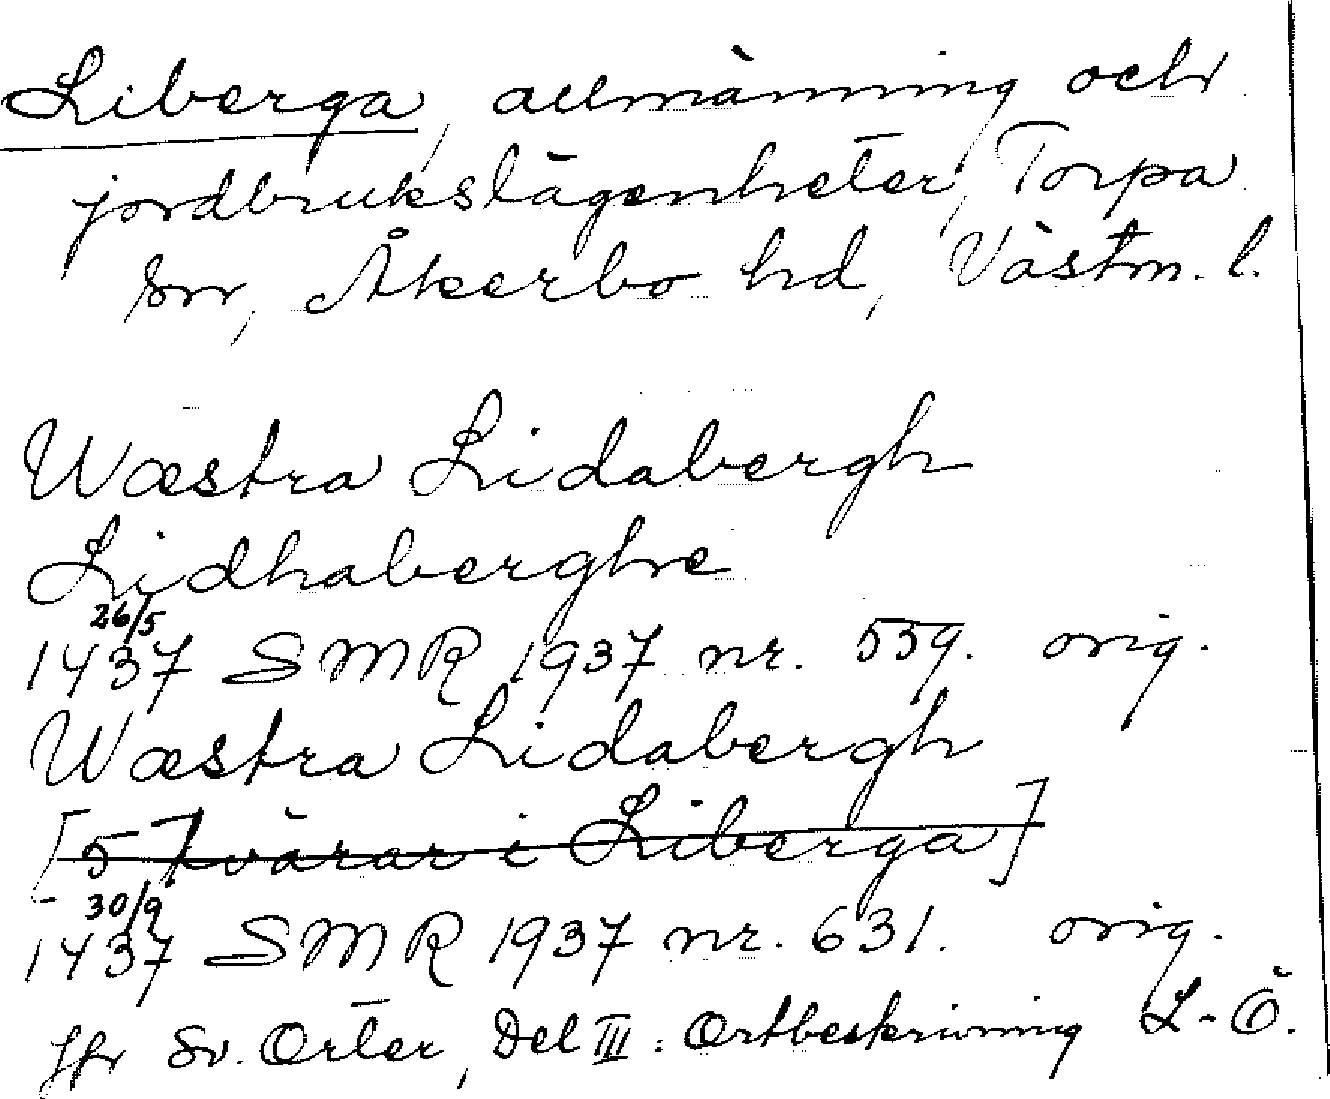 Liberga, allmänning och
jordbrukslägenheter, Torpa
sn, Åkerbo hd, Västm. l.
Wæstra Lidabergh
Lidhaberghe
26/5
1437 SMR 1937 nr. 559. orig.
Wæstra Lidabergh
[5 kvarar i Liberga]
30/9
1437 SMR 1937 nr. 631. orig.
Jfr Sv. Orter, Del III: Ortbeskrivning L-Ö.